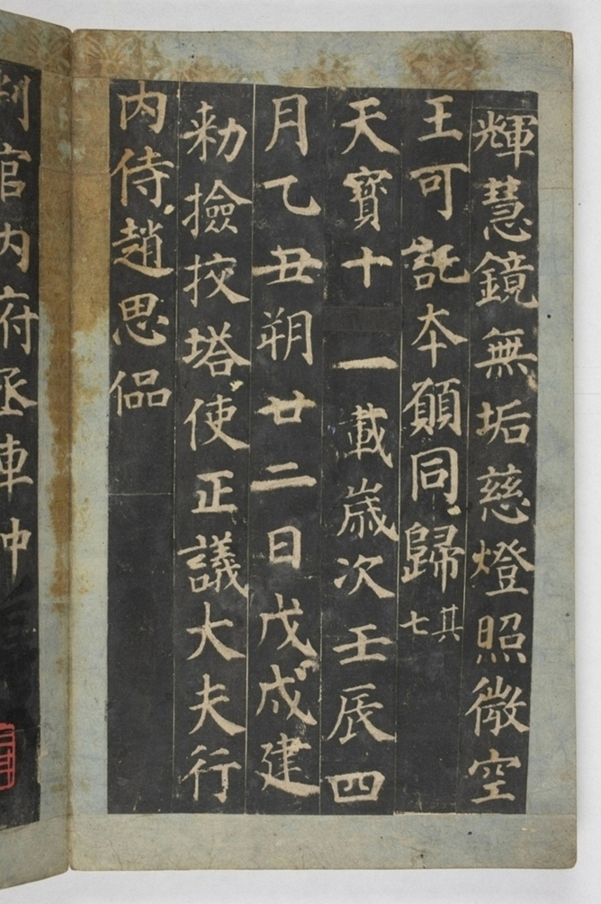 輝慧鏡無垢慈燈照微空
王可託本願同歸其七
天寶十一載歲次壬辰四
月乙丑朔廿二日戊戌建
勅檢挍塔使正議大夫行
內侍趙思侃
判官內府丞車沖